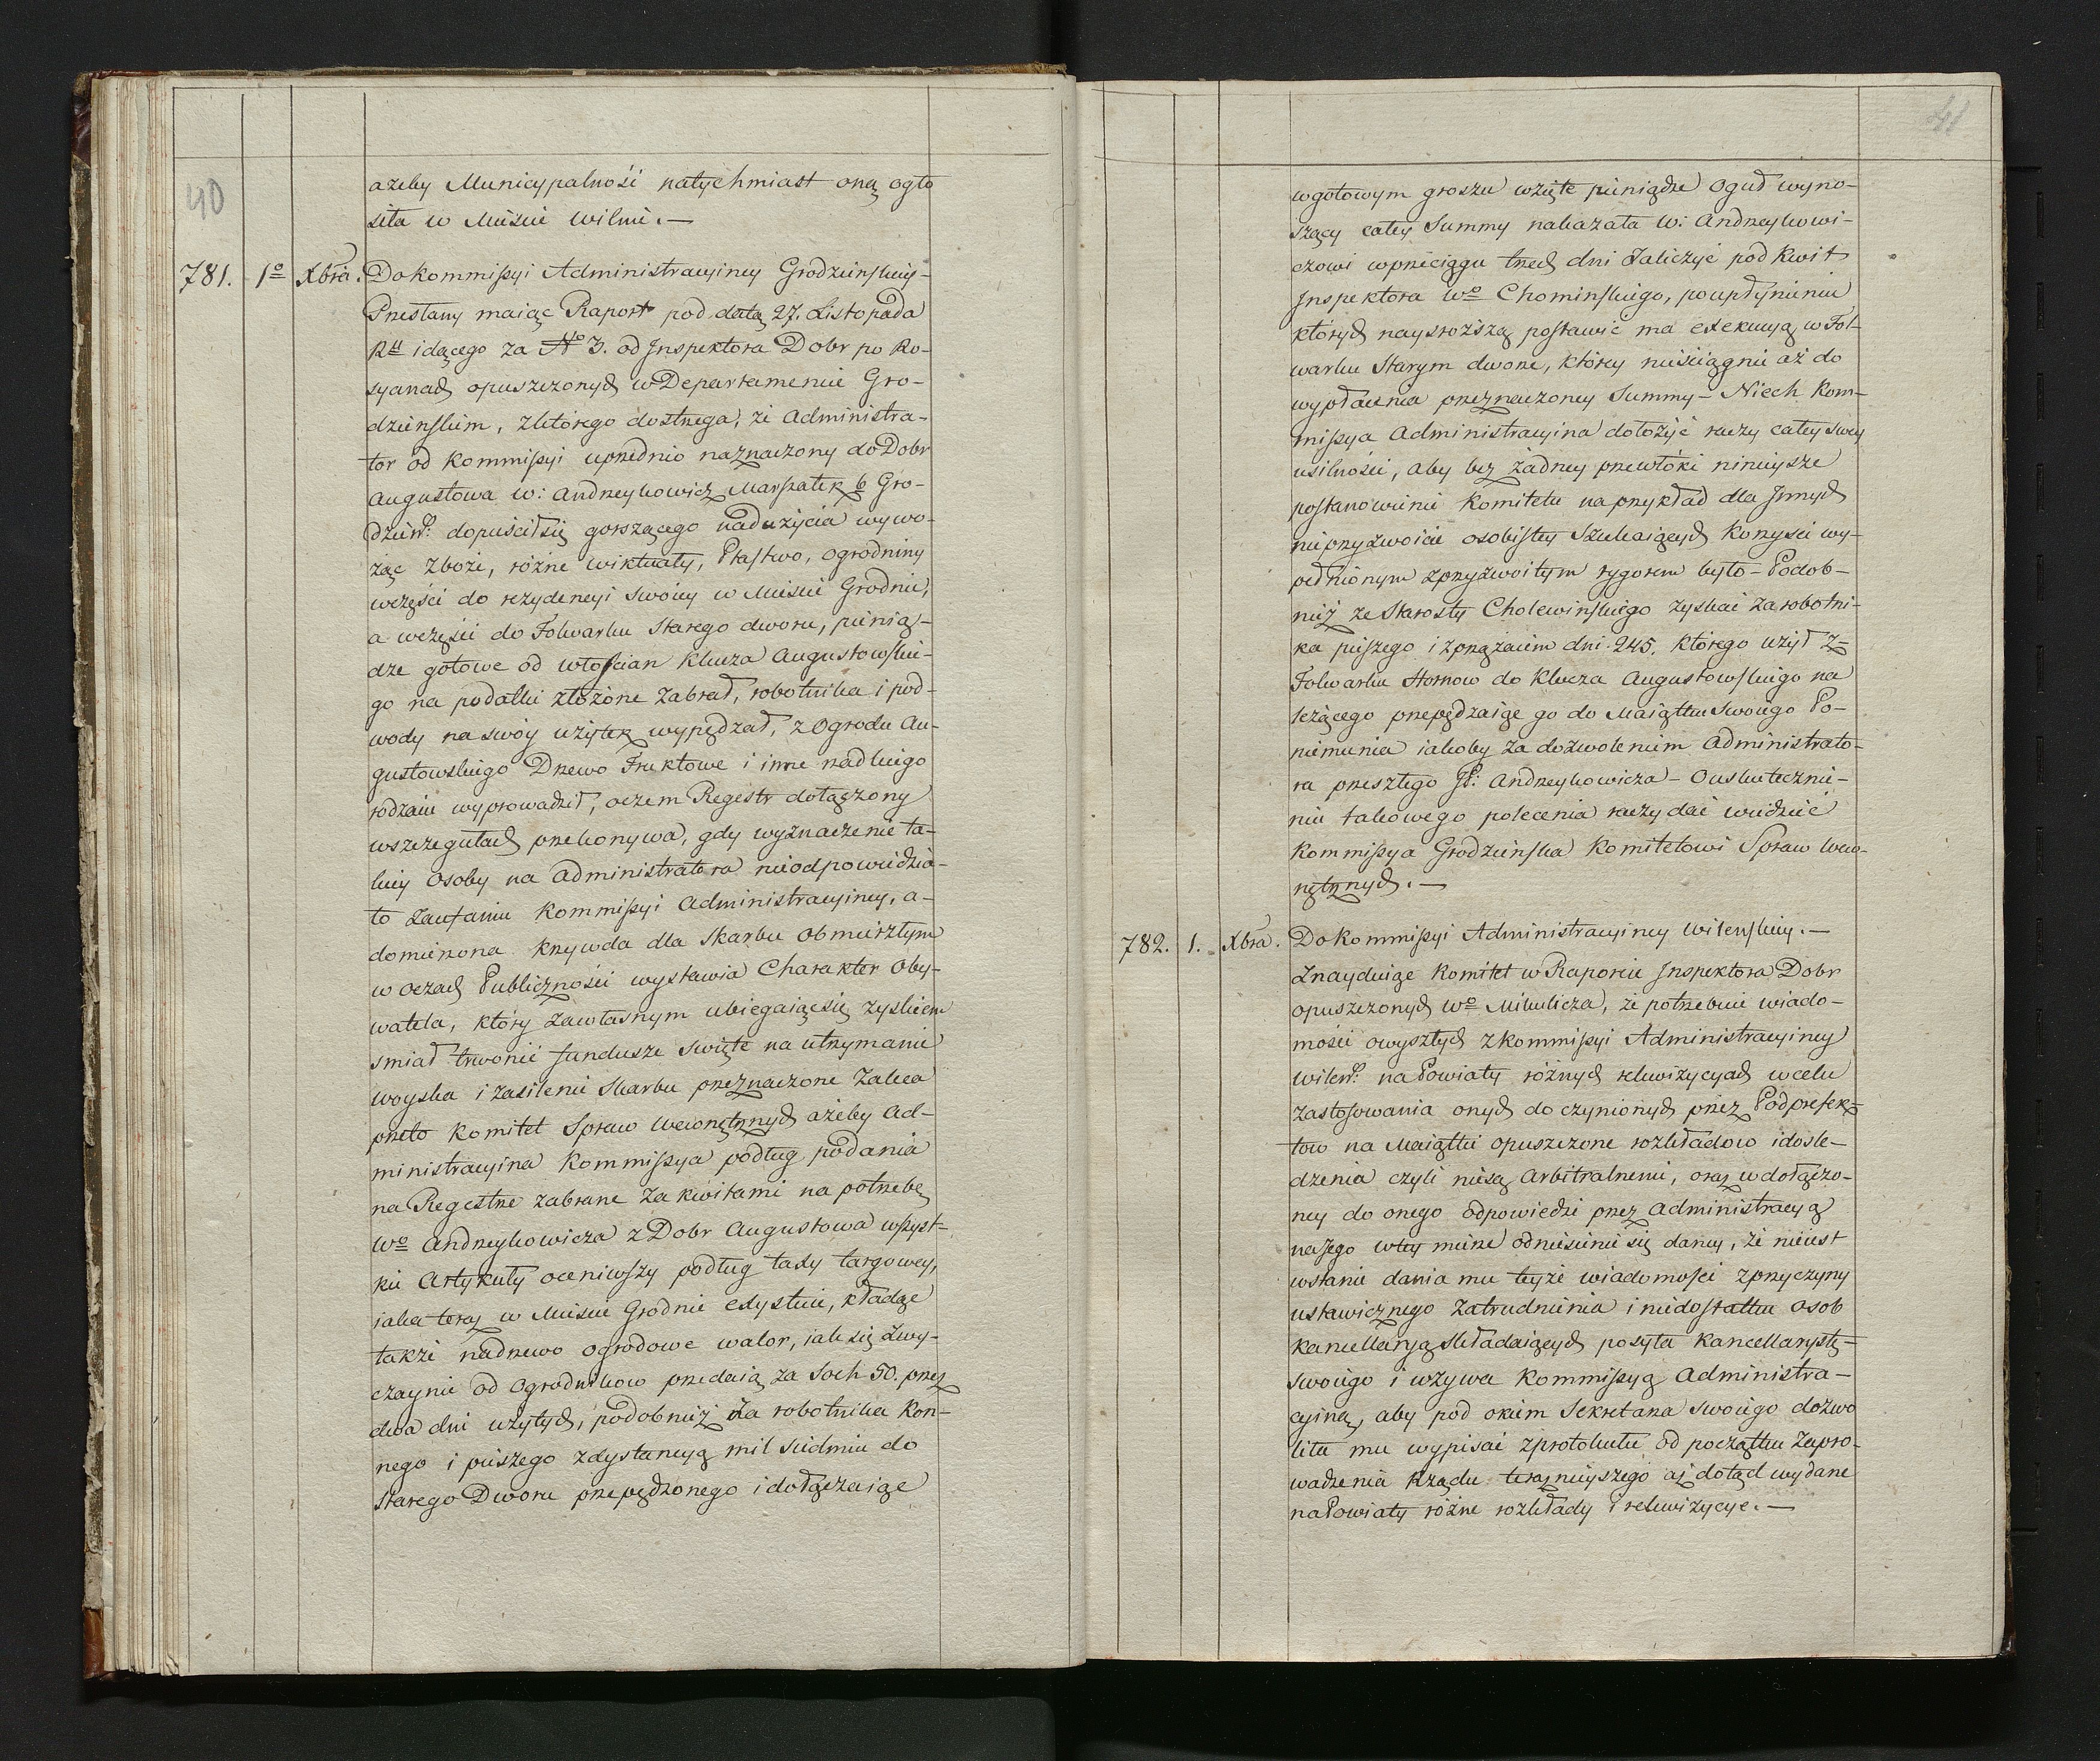 40
ażeby Municypalności natychmiast oną ogło
siła w Mieście Wilnie. —
781. 1º Xbra. Do Kommissyi Administracyiney Grodzieńskiey -
Przesłany maiąc Raport pod datą 27. Listopada
Ru idącego za No 3. od Inspektora Dobr po Ro-
syanach opuszczonych w Departamencie Gro-
dzieńskim, z którego dostrzega, że Administra-
tor od Kommissyi uprzednio naznaczony do Dobr
Augustowa W: Andrzeykowicz Marszałek b Gro-
dzieńs: dopuścił się gorszącego nadużycia wywo-
żąc Zboże, różne wiktuały, Ptastwo, ogrodniny
w części do rezydencyi swoiey w Mieście Grodnie,
a w części do Folwarku Starego dworu, pienią-
dze gotowe od włościan Klucza Augustowskie-
go na podatki złożone zabrał, robotnika i pod-
wody na swóy użytek wypędzał, z Ogrodu Au-
gustowskiego Drzewo Fruktowe i inne nadkiego
rodzaiu wyprowadził, oczem Regestr dołączony
w szczegułach przekonywa, gdy wyznaczenie ta-
kiey Osoby na Administratora nieodpowiedzia-
ło zaufaniu Kommissyi Administracyiney, a-
domierzona krzywda dla Skarbu obmierzłym
w oczach Publiczności wystawia Charakter Oby-
watela, który za własnym ubiegaiąc się zyskiem
smiał trwonić fundusze święte na utrzymanie
woyska i zasilenie Skarbu przeznaczone Zaleca
przeto Komitet Spraw Wewnętrznych ażeby Ad-
ministracyina Kommissya podług podania
na Regestrze zabrane za kwitami na potrzebę
Wo Andrzeykowicza z Dobr Augustowa wszyst-
kie Artykuły oceniwszy podług taxy targowey,
iaka teraz w Mieście Grodnie exystuie, kładąc
także na drzewo ogrodowe walor, iak się zwy-
czaynie od Ogrodnikow przedaią za Soch 50. przez
dwa dni użytych, podobnież za robotnika Kon-
nego i pieszego z dystancyą mil siedmiu do
Starego Dworu przepędzonego i dołączaiąc
41
w gotowym groszu wzięte pieniądze oguł wyno-
szący całey Summy nakazała W: Andrzeykowi-
czowi w przeciągu trzech dni Zaliczyć pod Kwit
Inspektora Wo Chominskiego, po upłynieniu
których naysroższą postawić ma exekucyą w Fol-
warku Starym dworze, którey nieściągnie aż do
wypłacenia przeznaczoney Summy - Niech Kom-
missya Administracyina dołożyć raczy całey swey
usilności, aby bez żadney przewłóki ninieysze
postanowienie Komitetu na przykład dla Innych
nieprzyzwoicie osobistey Szukaiących Korzyści wy-
pełnionym z przyzwoitym rygorem było - Podob-
nież ze Starosty Cholewinskiego zyskać za robotni-
ka pieszego i z przężaiem dni 245. którego użył z
Folwarku Hornow do Klucza Augustowskiego na
leżącego przepędzaiąc go do Maiątku swoiego Po-
niemunia iakoby za dozwoleniem Administrato-
ra przeszłego JP: Andrzeykowicza - O uskutecznie-
niu takowego polecenia raczy dać wiedzieć
Kommissya Grodzieńska Komitetowi Spraw Wew-
nętrznych. —
782. 1. Xbra. Do Kommissyi Administracyiney Wileńskiey. —
Znayduiąc Komitet w Raporcie Inspektora Dobr
opuszczonych Wo Mikulicza, że potrzebuie wiado-
mości o wyszłych z Kommissyi Administracyiney
Wileńs: na Powiaty różnych rekwizycyach w celu
zastosowania onych do czynionych przez Podprefek-
tow na Maiątki opuszczone rozkładow i dosle-
dzenia czyli niesą Arbitralnemi, oraz w dołączo-
ney do onego odpowiedzi przez Administracyą
na Jego w tey mierze odniesienie się daney, że nieiest
w stanie dania mu teyże wiadomości z przyczyny
ustawicznego zatrudnienia i niedostatku osob
kancellaryą składaiących posyła Kancellarzystę-
swoiego i wzywa Kommissyą Administra-
cyiną, aby pod okiem Sekretarza swoiego dozwo
liła mu wypisać z protokułu od początku Zapro-
wadzenia Rządu teraznieyszego aż dotąd wydane
na Powiaty różne rozkłady i rekwizycye. —